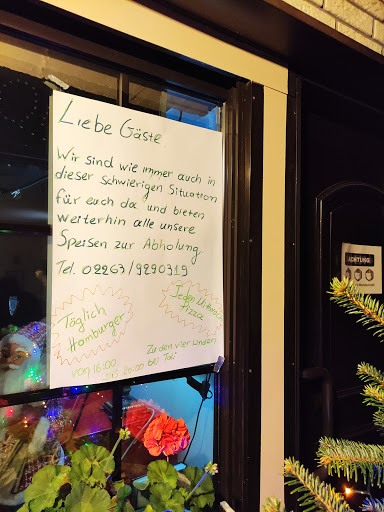 Liebe Gäste
Wir sind wie immer auch in
dieser schwierigen Situation
für euch da und bieten
weiterhin alle unsere
Speisen zur Abholung
Tel. 02263/9290319
Täglich
Hamburger
Jeden
Pizza
Zu den vier Winden
von 16:00
bis 20:00 bei Toli
ACHTUNG